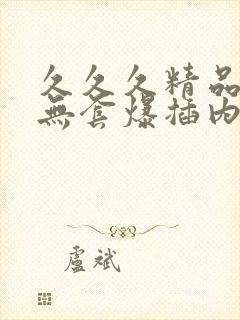 久久久精品
無套爆插内
盧斌